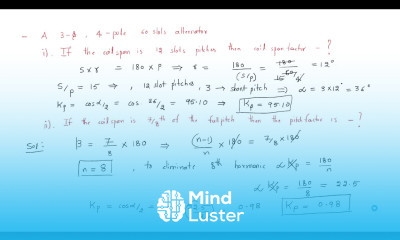 - A 3-φ, 4-pole 60 slots alternator
i). If the coil span is 12 slots pitches then coil span factor - ?
S×γ = 180×P ⇒ γ = 180/(S/P) = 180/15 = 12°
S/P = 15 ⇒, 12 slot pitches, 3 → short pitch ⇒ α = 3×12° = 36°
Kp = cos α/2 = cos 36/2 = 95.10 ⇒ Kp = 95.10
ii). If the coil span is 7/8th of the full pitch then the pitch factor is - ?
Sol: β = 7/8 × 180 ⇒ (n-1)/n × 180 = 7/8 × 180
n = 8, to eliminate 8th harmonic α = 180/n
α = 180/8 = 22.5
Kp = cos α/2 = 0.98 Kp = 0.98
Mind
Luster